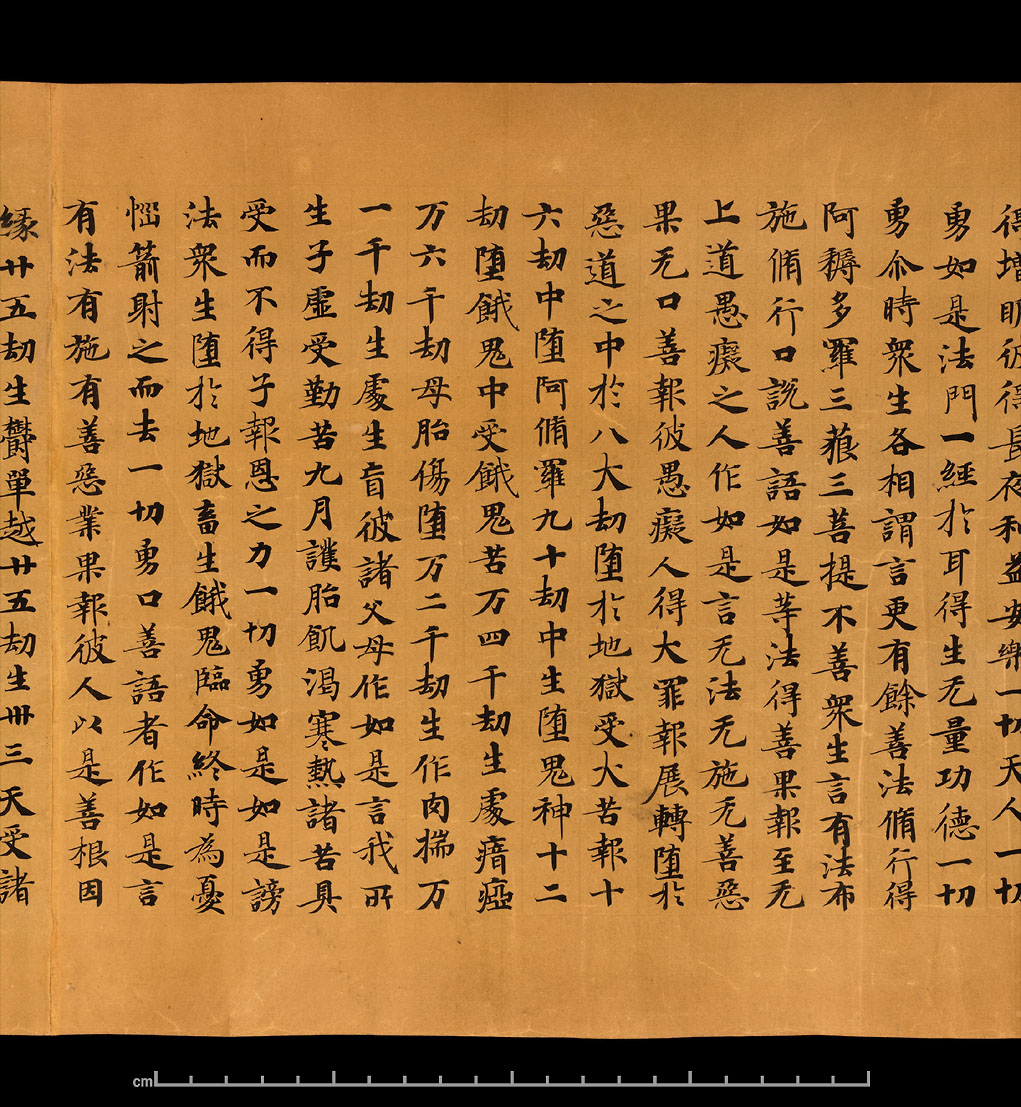 得增明彼得長夜利益安樂一切天人一切
勇如是法門一經於耳得生无量功德一切
勇尒時衆生各相謂言更有餘善法脩行得
阿耨多羅三藐三菩提不善衆生言有法布
施脩行口說善語如是等法得善果報至无
上道愚癡之人作如是言无法无施无善惡
果无口善報彼愚癡人得大罪報展轉堕於
惡道之中於八大劫堕於地獄受大苦報十
六劫中堕阿脩羅九十劫中生堕鬼神十二
劫堕餓鬼中受餓鬼苦万四千劫生處瘖瘂
万六千劫母胎傷堕万二千劫生作肉揣万
一千劫生處生盲彼諸父母作如是言我所
生子虛受勤苦九月護胎飢渴寒熱諸苦具
受而不得子報恩之力一切勇如是如是謗
法衆生堕於地獄畜生餓鬼臨命終時為憂
惱箭射之而去一切勇口善語者作如是言
有法有施有善惡業果報彼人以是善根因
緣廿五劫生欝單越廿五劫生卅三天受諸